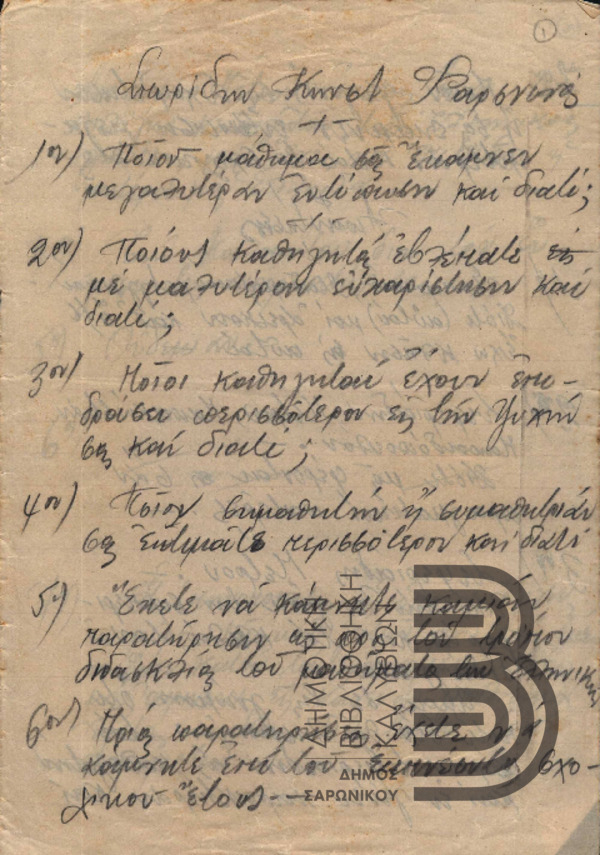 1
Σπυρίδων Κωνστ
1ον) Ποῖον μάθημα σᾶς ἔκαμνεν
μεγαλυτέραν ἐντύπωσιν καί διατί;
2ον) Ποιόυς καθηγητάς ἐβλέπατε
μέ μαλυτέραν εὐχαρίστησιν καί
διατί;
3ον) Ποῖοι καθηγηταί ἔχουν ἐπι-
δράσει περισσότερον εἰς τήν ψυχήν
σας καί διατί;
4ον) Ποῖον συμαθητήν ἤ συμαθητριάν
σας ἐκτιμᾶτε περισσότερον καί διατί
5ον) Ἔχετε νά κάμνητε καμμίαν
παρατήρησιν ὡς πρός τόν τρόπον
διδασκλίας τοῦ μαθήματος των Ἑλληνικῶν
6ον) Ποιάς παρατηρήσεις ἔχετε νά
κάμνητε ἐπί τοῦ σχο-
λικοῦ ἔτους.--
ΔΗΜΟΤΙΚΗ
ΒΙΒΛΙΟΘΗΚΗ
ΚΑΛΥΒΙΩΝ
ΔΗΜΟΣ
ΣΑΡΩΝΙΚΟΥ